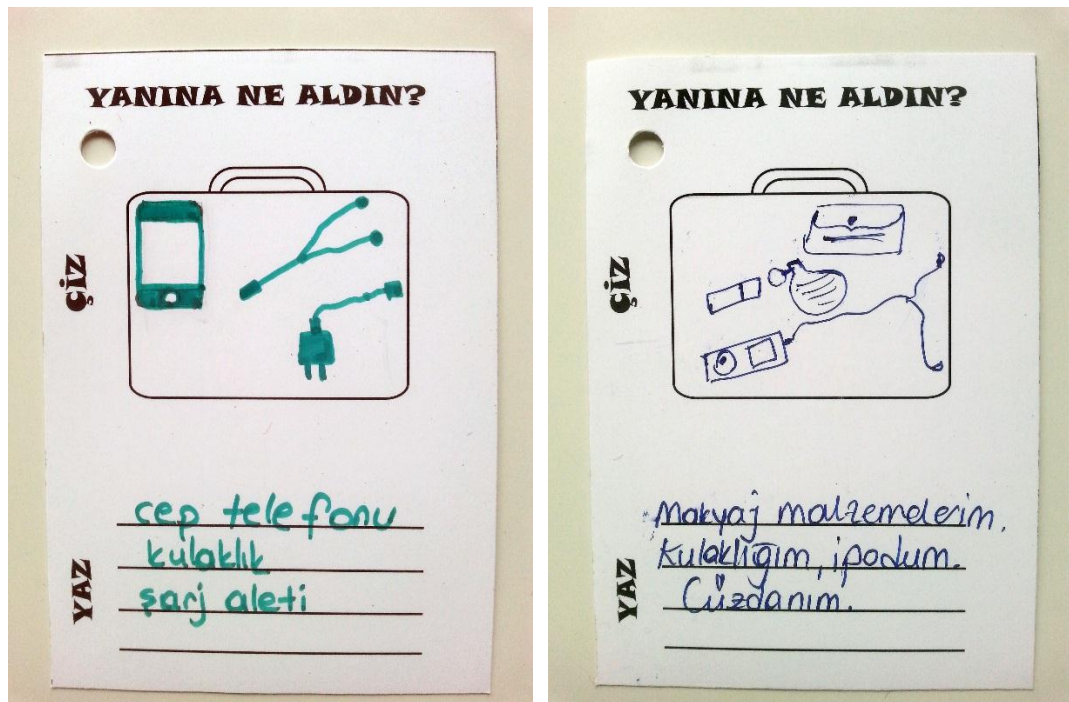 YANINA NE ALDIN?
ÇİZ
YAZ
cep telefonu
kulaklık
şarj aleti
YANINA NE ALDIN?
ÇİZ
YAZ
Makyaj malzemelerim,
Kulaklığım, ipodum.
Cüzdanım.